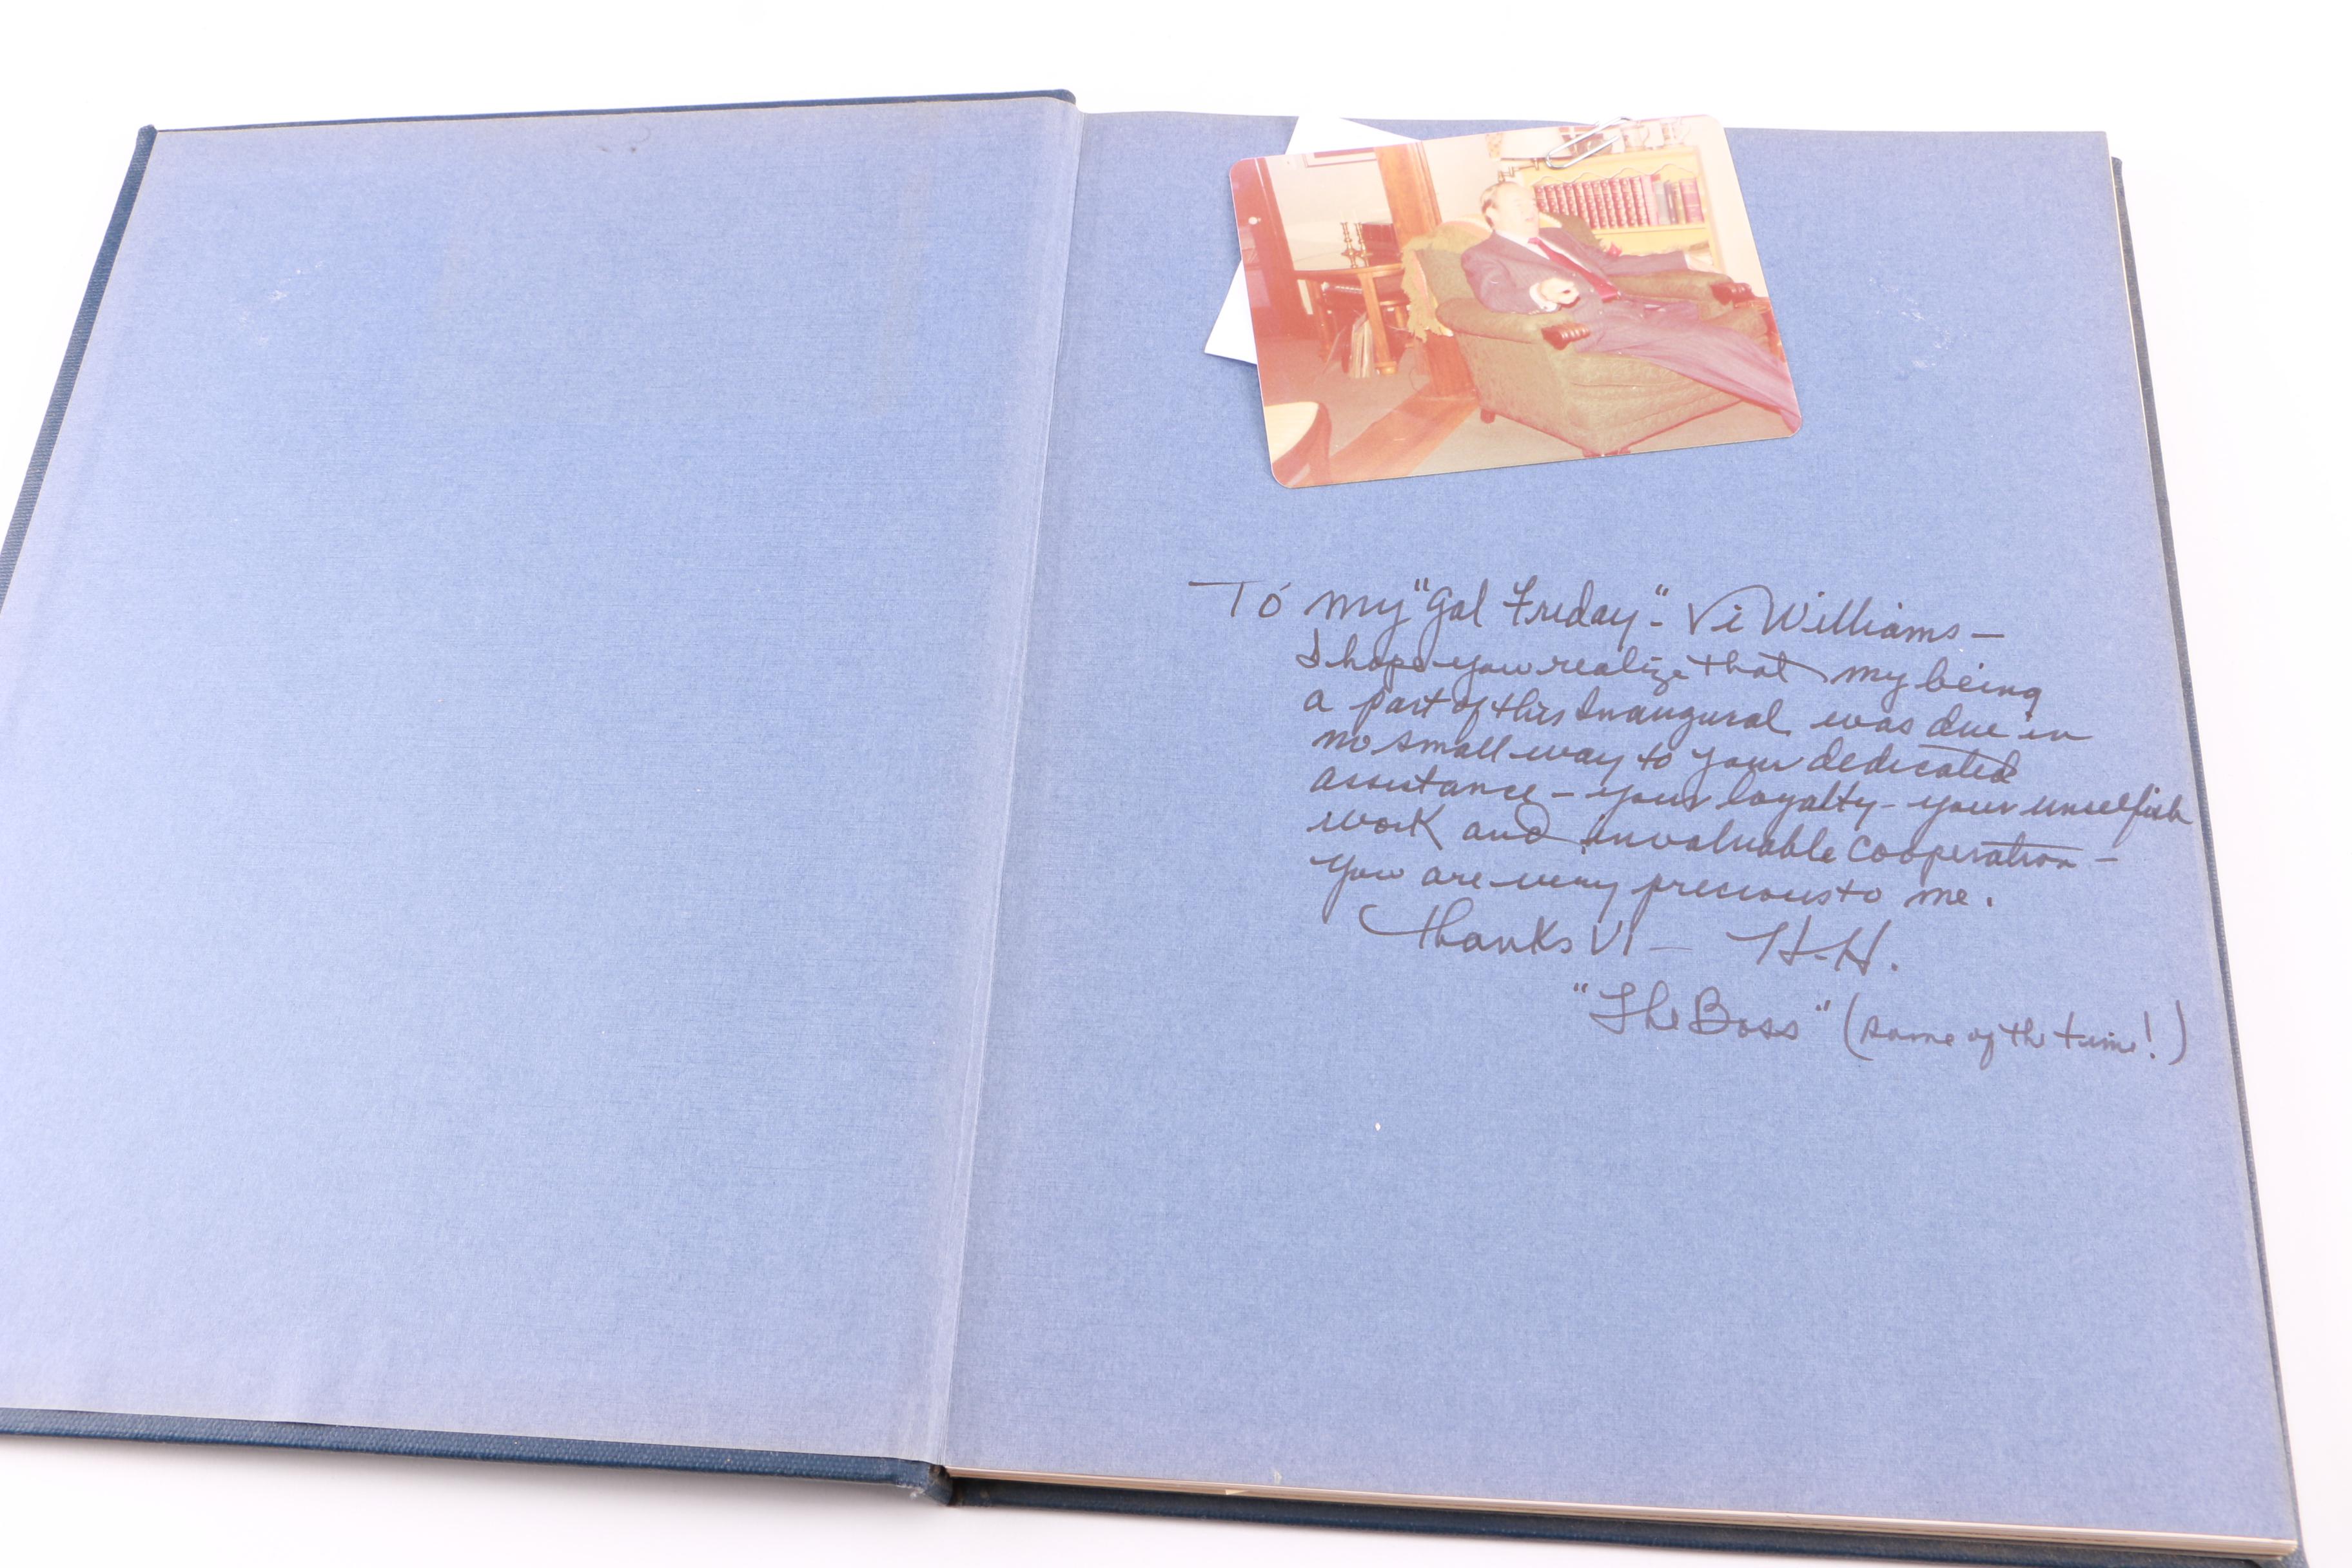 To my "Gal Friday" - Vi Williams -
I hope you realize that my being
a part of this Inaugural was due in
no small way to your dedicated
assistance - your loyalty - your unselfish
work and invaluable cooperation -
you are very precious to me.
Thanks Vi - H.H.
"The Boss" (some of the time!)